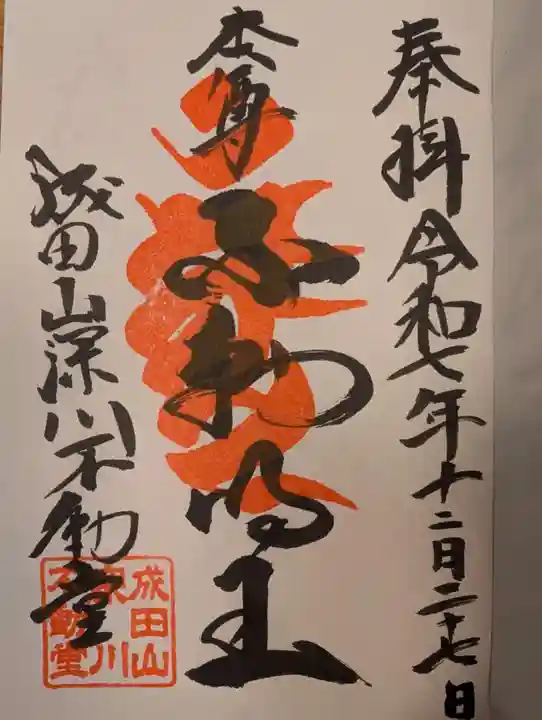 奉拝 令和七年十二月二十七日
本尊 不動明王
成田山深川不動堂
成田山
深川
不動堂